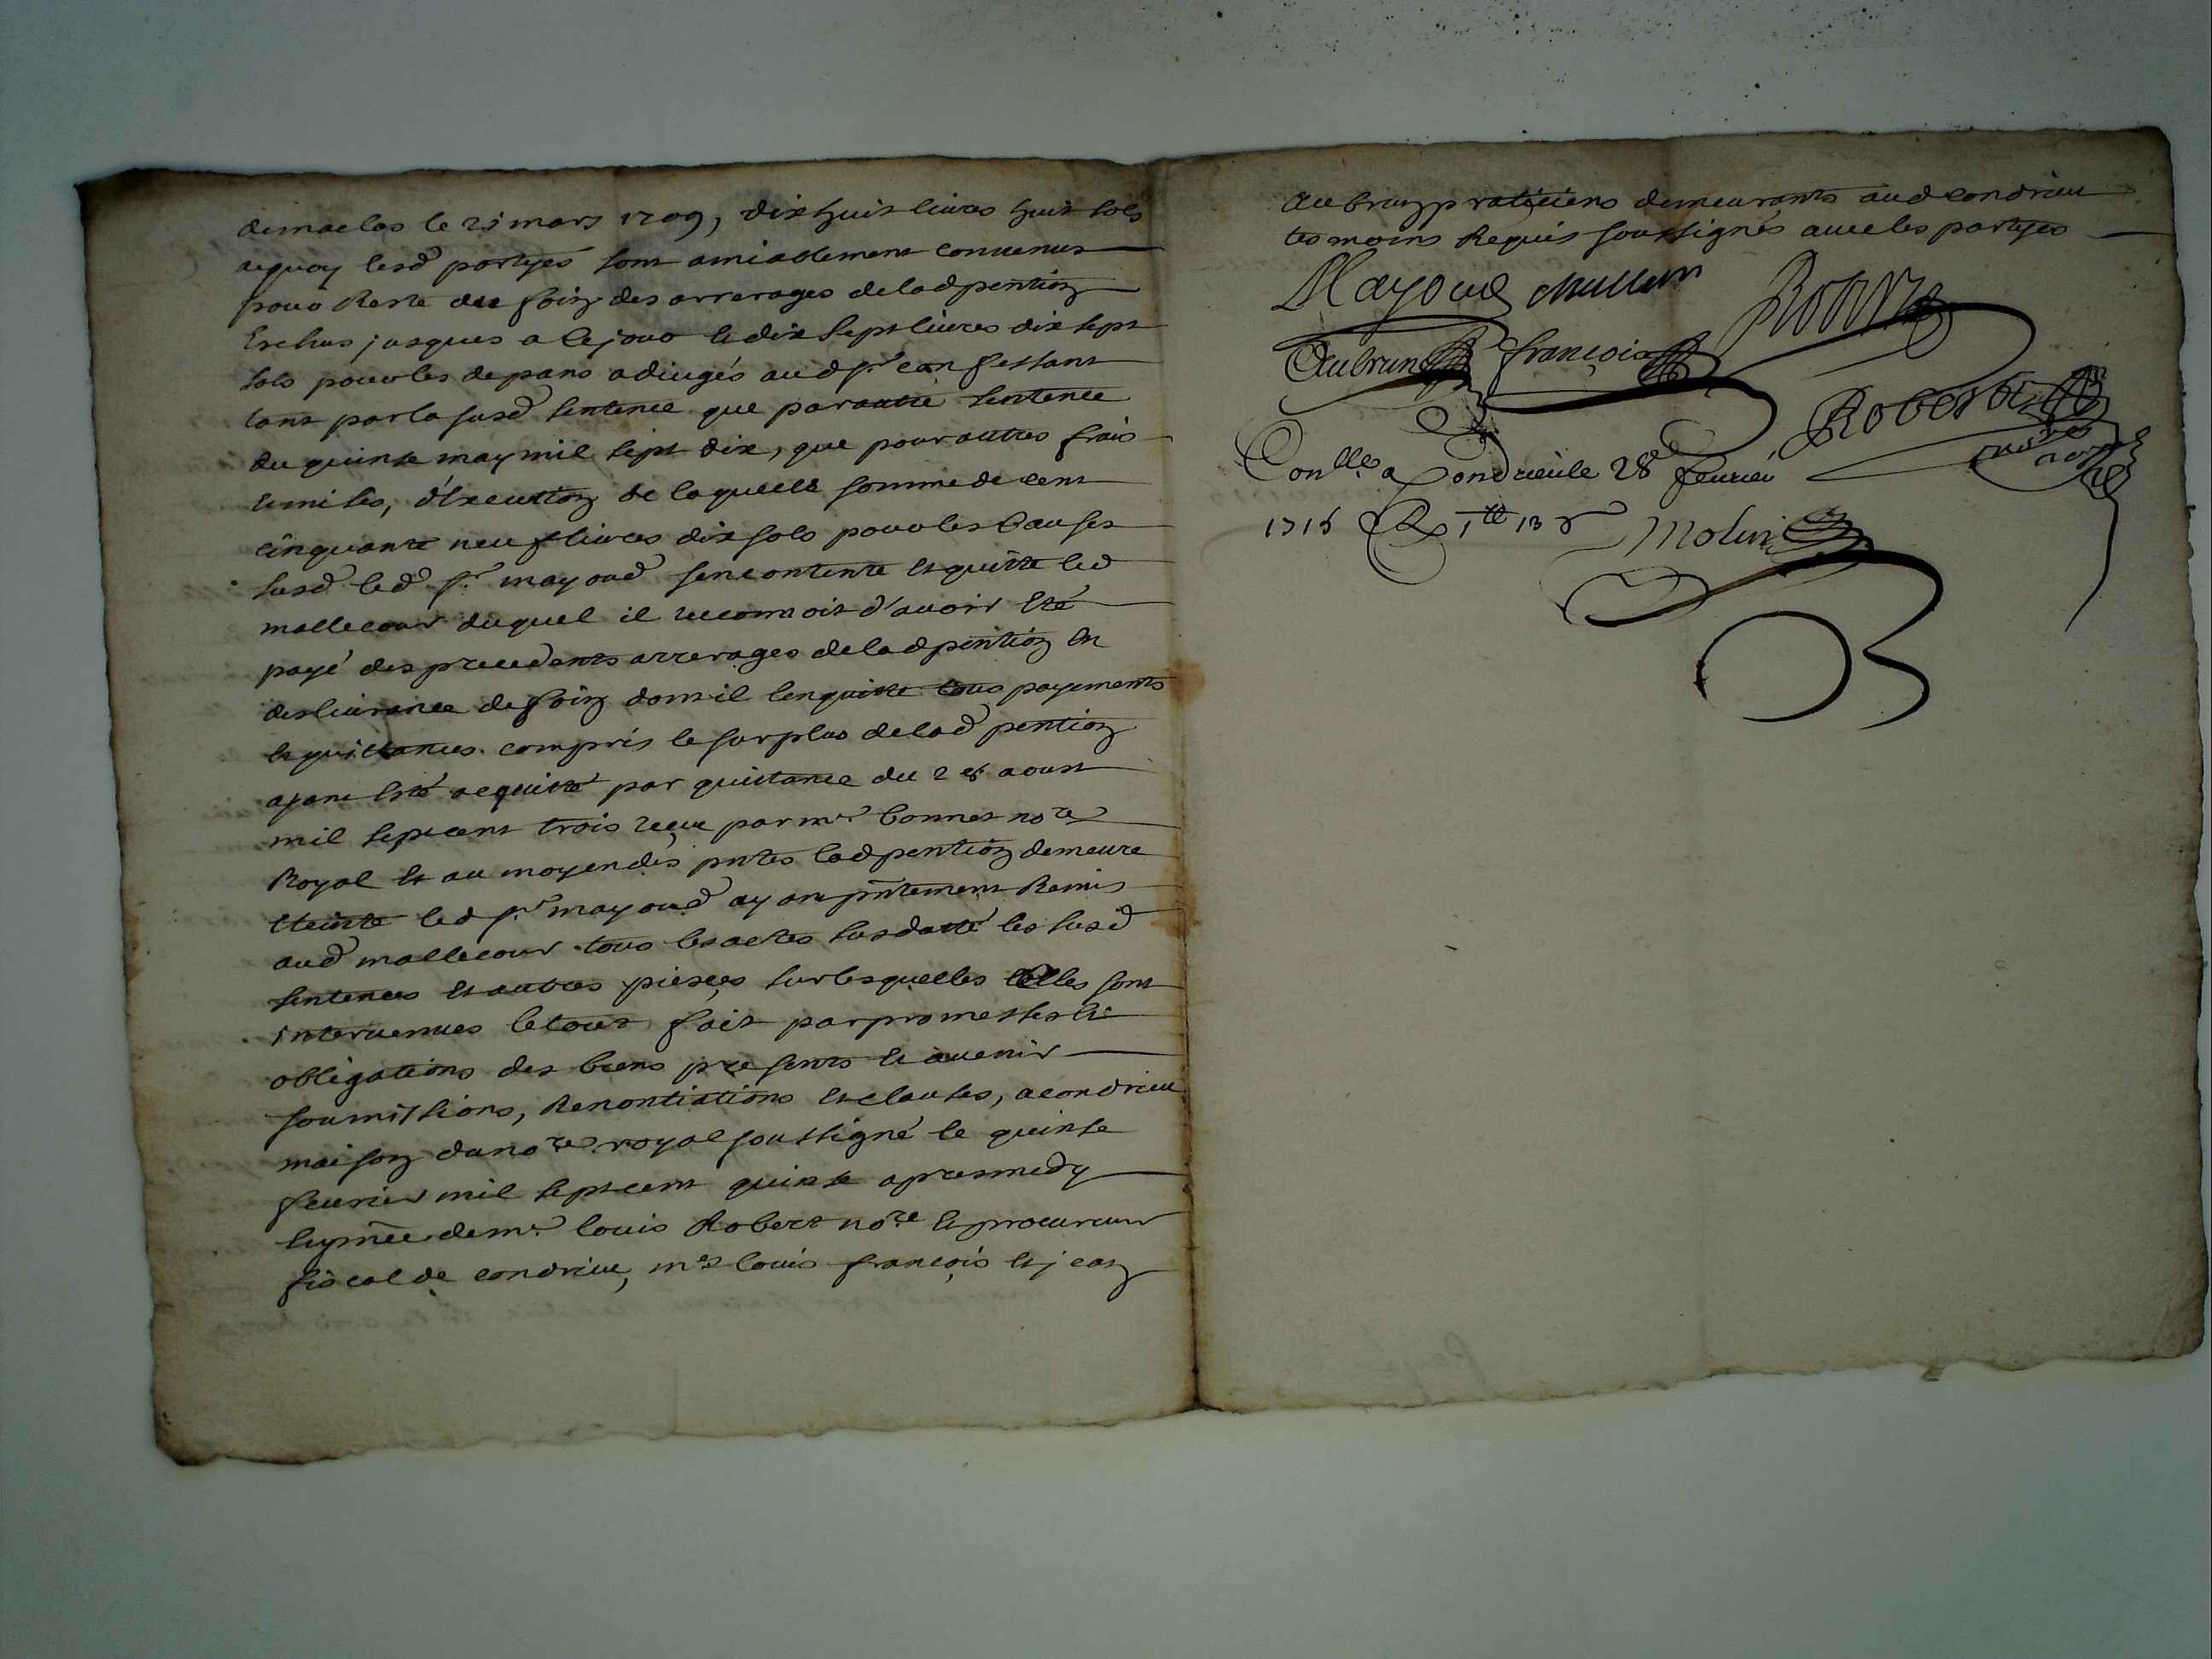 de maclas le 21 mars 1709, dix huit livres huit sols
aquoy lesd partyes sont amiablement convenus
pour Reste du foin des arrerages de lad pention
Escheus jusques a ce jour et dix sept livres dix sept
sols pour les depans adiugés aud sr
tant par la susd sentence que par autre sentence
du quinse may mil sept dix, que pour autres frais
et mises, d'Execution de laquelle somme de cent
cinquante neuf livres dix sols pour les causes
susd led sr mayoud sen contente et quitte led
mallecour duquel il reconnoit d'avoir Eté
payé des precedents arrerages de lad pention en
deslivrance de foin dont il len quitte tous payements
et quittances compris le surplus de lad pention
ayant Eté acquitté par quittance du 28 aoust
mil sept cent trois receu par me bonnet nore
Royal Et au moyen des pntes lad pention demeure
Eteinte led sr mayoud ayant pntement Remis
aud mallecour tous les actes susdatté les susd
sentences et autres pieses surlesquelles Elles sont
intervenues le tout fait par promesses et
obligations des biens presents et avenir
soumissions, Renontiations et clauses, a condrieu
maison du nore royal soussigné le quinse
fevrier mil sept cent quinse apres midy
En pnce de me louis Robert nore et procureur
fiscal de condrieu, mes louis françois et jean
Aubrun pratitiens demeurants aud condrieu
tesmoins Requis soussignés avec les partyes
Mayoud
Robert
Aubrun françois
Robert
nore
Conlle a Condrieu le 28e fevrier
1715 R 1tt 13 s Molin